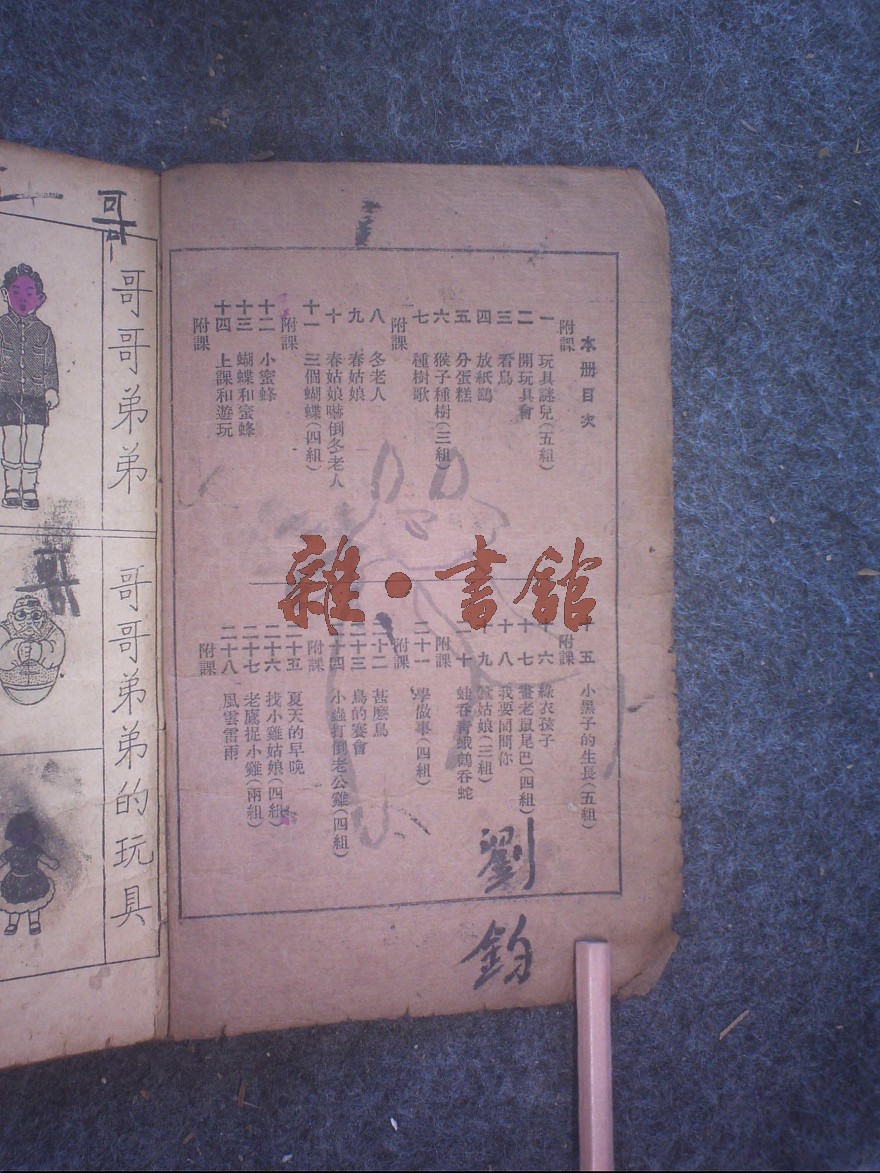 本册目次
附課
一 玩具謎兒(五組)
二 開玩具會
三 看鳥
四 放紙鷂
五 分蛋糕
六 猴子種樹(三組)
七 種樹歌
附課
八 冬老人
九 春姑娘
十 春姑娘嚇倒冬老人
十一 三個蝴蝶(四組)
附課
十二 小蜜蜂
十三 蝴蝶和蜜蜂
十四 上課和遊玩
附課
十五 小黑子的生長(五組)
附課
十六 綠衣孩子
十七 畫老鼠尾巴(四組)
十八 我要問問你
十九 姑娘(三組)
二十 蛙吞青蛾吞蛇
附課
二十一 學做事(四組)
附課
二十二 甚麽鳥
二十三 鳥的賽會
二十四 小蟲打倒老公雞(四組)
附課
二十五 夏天的早晚
二十六 找小雞姑娘(四組)
二十七 老鷹捉小雞(兩組)
二十八 風雲雷雨
附課
劉鈞
雜·書館
哥
哥哥弟弟
哥哥弟弟的玩具
哥